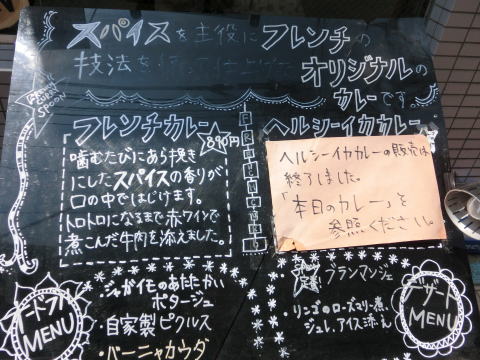 スパイスを主役にフレンチの
技法を
オリジナルの
カレーです。
フレンチカレー
890円
噛むたびにあら挽き
にしたスパイスの香りが
口の中ではじけます。
トロトロになるまで赤ワインで
煮こんだ牛肉を添えました。
ヘルシーイカカレー
ヘルシーイカカレーの販売は
終了しました。
「本日のカレー」を
参照ください。
MENU
・ジャガイモのあたたかい
ポタージュ
・自家製ピクルス
・バーニャカウダ
定番
ブランマンジェ
・リンゴのローズマリー煮、
ジュレ、アイス添え
デザート
MENU